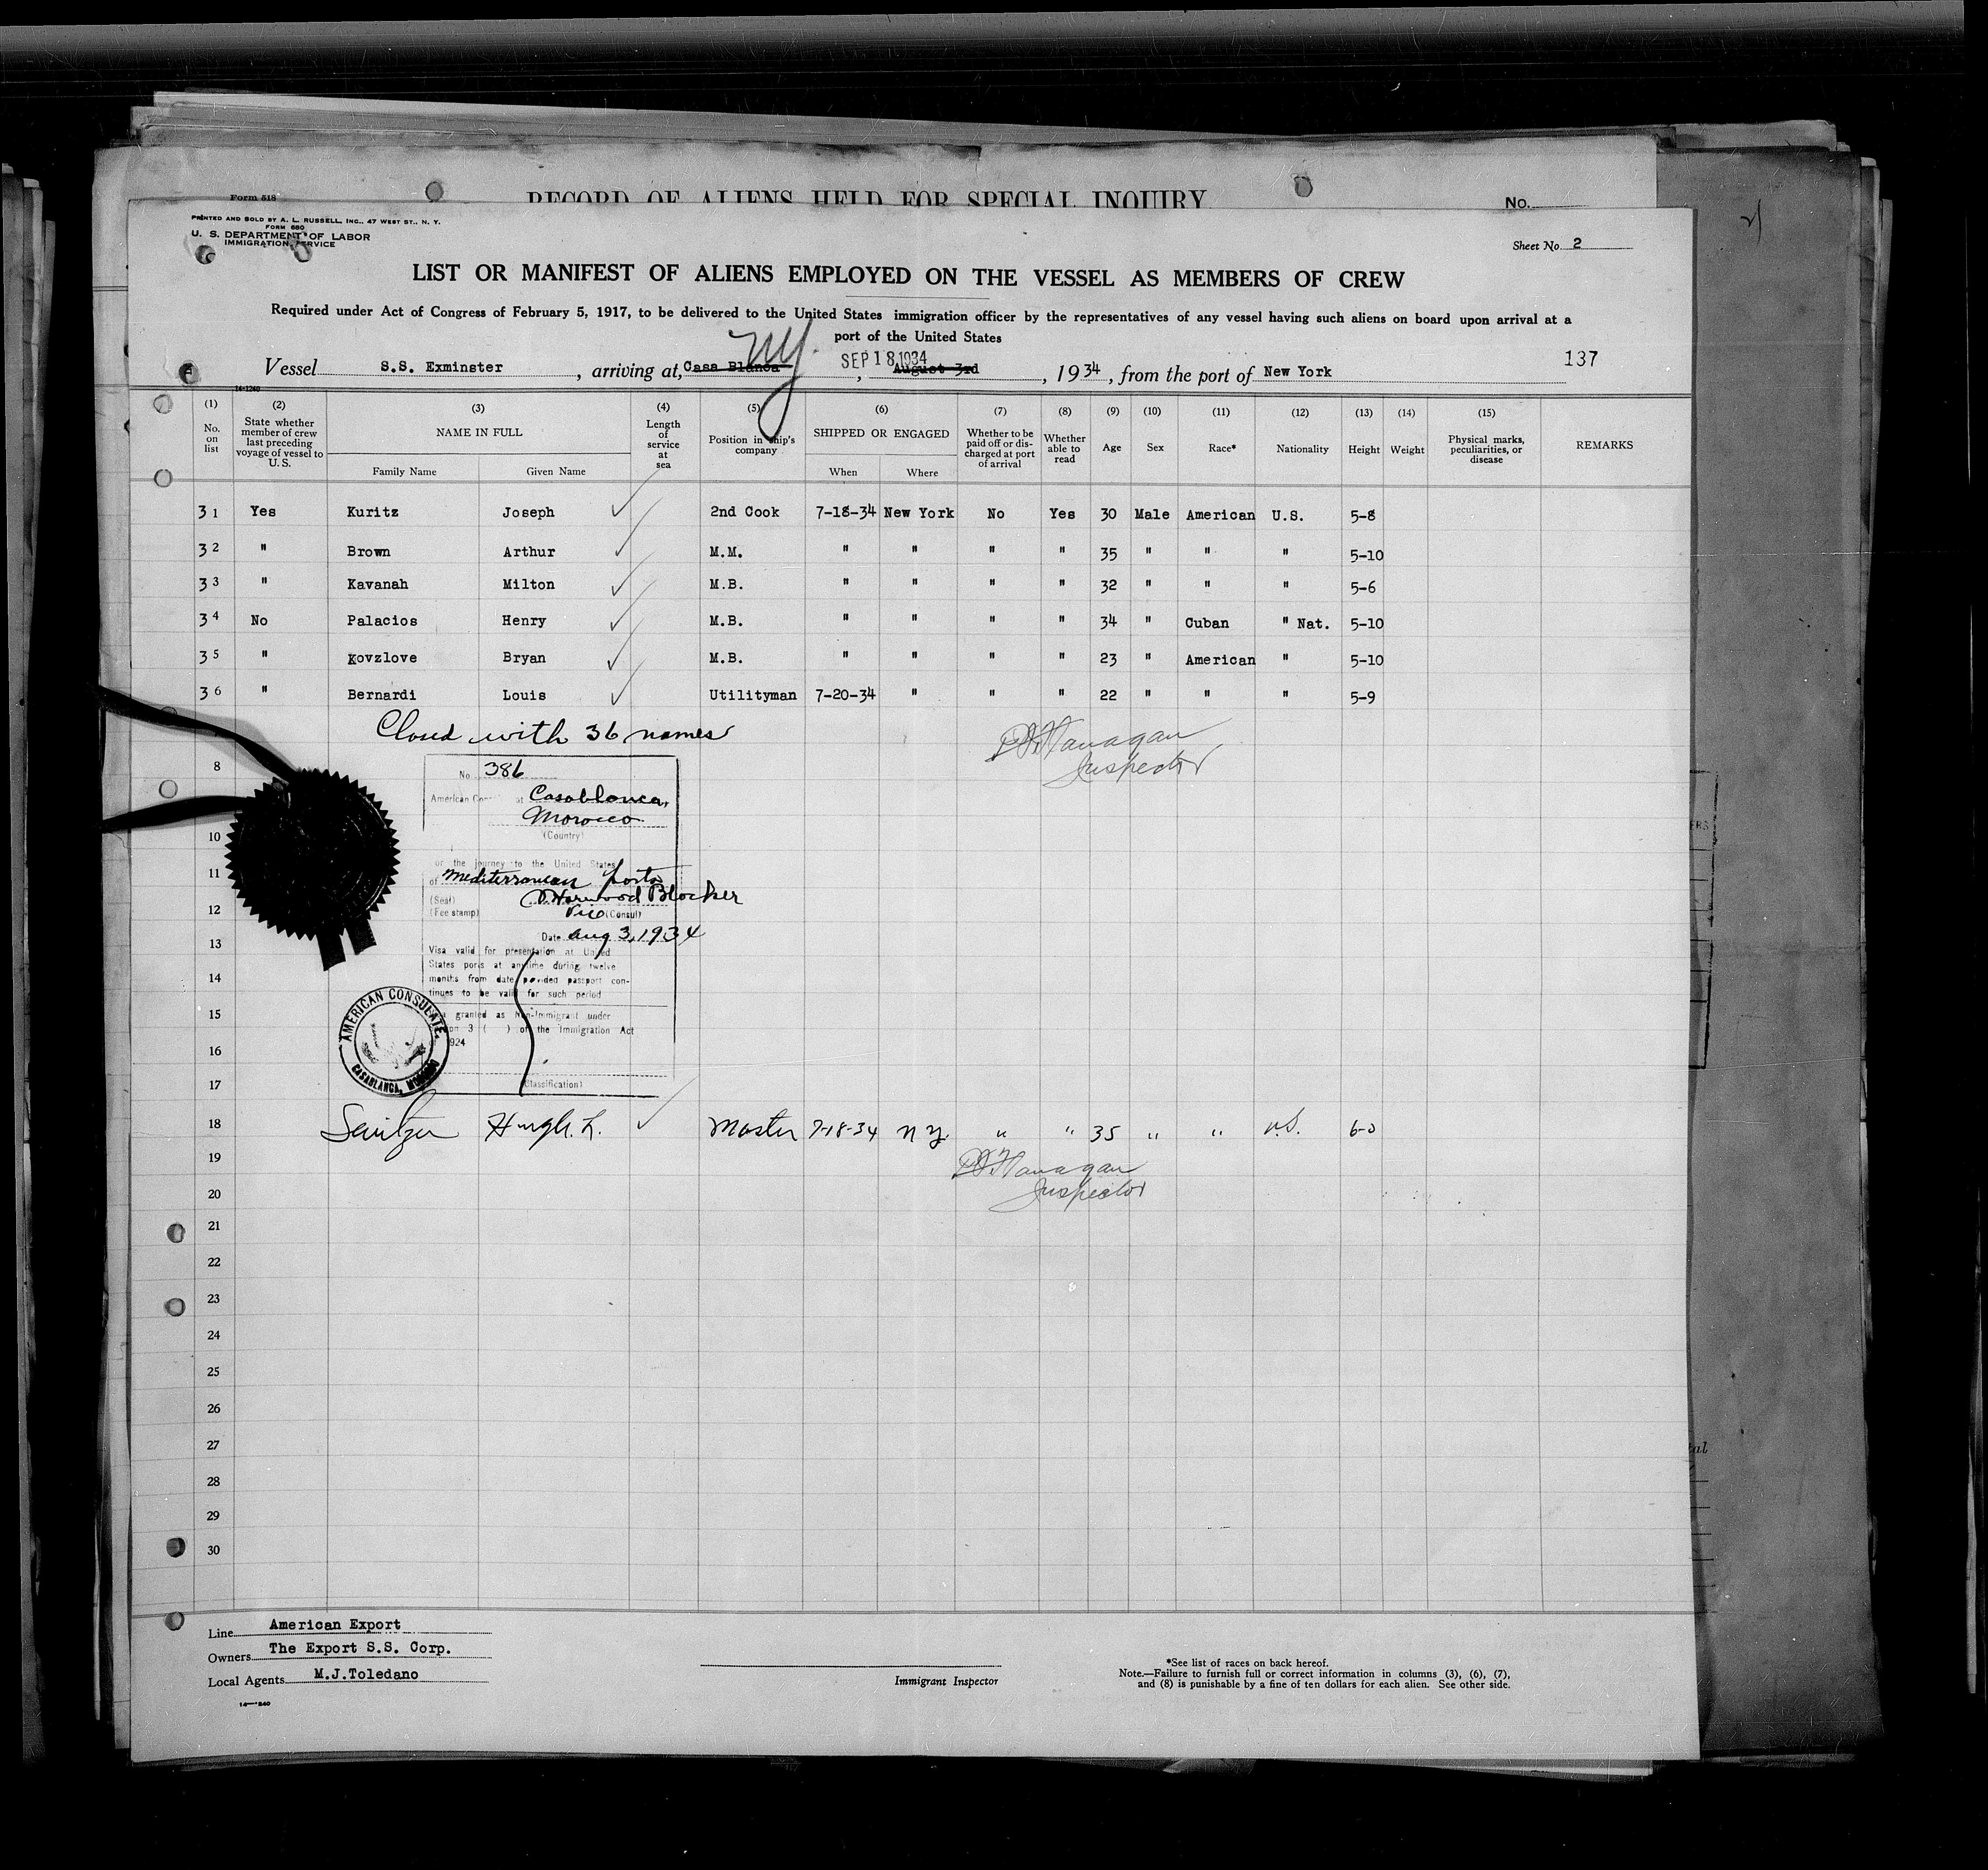 Form 518
RECORD OF ALIENS HELD FOR SPECIAL INQUIRY
No.
PRINTED AND SOLD BY A. L. RUSSELL, INC., 47 WEST ST., N. Y.
FORM 680
U. S. DEPARTMENT OF LABOR
IMMIGRATION SERVICE
Sheet No. 2
LIST OR MANIFEST OF ALIENS EMPLOYED ON THE VESSEL AS MEMBERS OF CREW
Required under Act of Congress of February 5, 1917, to be delivered to the United States immigration officer by the representatives of any vessel having such aliens on board upon arrival at a
port of the United States
Vessel S.S. Exminster, arriving at, Casa Blanca NY. SEP 18 1934, August 3rd, 1934, from the port of New York 137
14-1240
(1) (2) (3) (4) (5) (6) (7) (8) (9) (10) (11) (12) (13) (14) (15)
No. on list State whether member of crew last preceding voyage of vessel to U. S. NAME IN FULL Length of service at sea Position in ship's company SHIPPED OR ENGAGED Whether to be paid off or discharged at port of arrival Whether able to read Age Sex Race* Nationality Height Weight Physical marks, peculiarities, or disease REMARKS
Family Name Given Name When Where
31 Yes Kuritz Joseph 2nd Cook 7-18-34 New York No Yes 30 Male American U.S. 5-8
32 " Brown Arthur M.M. " " " " 35 " " " 5-10
33 " Kavanah Milton M.B. " " " " 32 " " " 5-6
34 No Palacios Henry M.B. " " " " 34 " Cuban " Nat. 5-10
35 " Kovzlove Bryan M.B. " " " " 23 " American " 5-10
36 " Bernardi Louis Utilityman 7-20-34 " " " 22 " " " 5-9
Closed with 36 names
Flanagan
Inspector
8
No. 386
American Consulate at Casablanca,
Morocco
(Country)
10
or the journey to the United States
11
of Mediterranean ports
(Seal) Harwood Blocker
(Fee stamp) Vice (Consul)
12
Date Aug 3, 1934
13
Visa valid for presentation at United
States ports at anytime during twelve
14
months from date provided passport con-
tinues to be valid for such period
15
granted as Non-Immigrant under
on 3 ( ) of the Immigration Act
1924
16
17
(Classification)
AMERICAN CONSULATE,
CASABLANCA, MOROCCO
18 Hugh. L. Master 7-18-34 N Y. " " 35 " " U.S. 6-0
19
Flanagan
Inspector
20
21
22
23
24
25
26
27
28
29
30
Line American Export
Owners The Export S.S. Corp.
Local Agents M.J.Toledano
Immigrant Inspector
*See list of races on back hereof.
Note.—Failure to furnish full or correct information in columns (3), (6), (7),
and (8) is punishable by a fine of ten dollars for each alien. See other side.